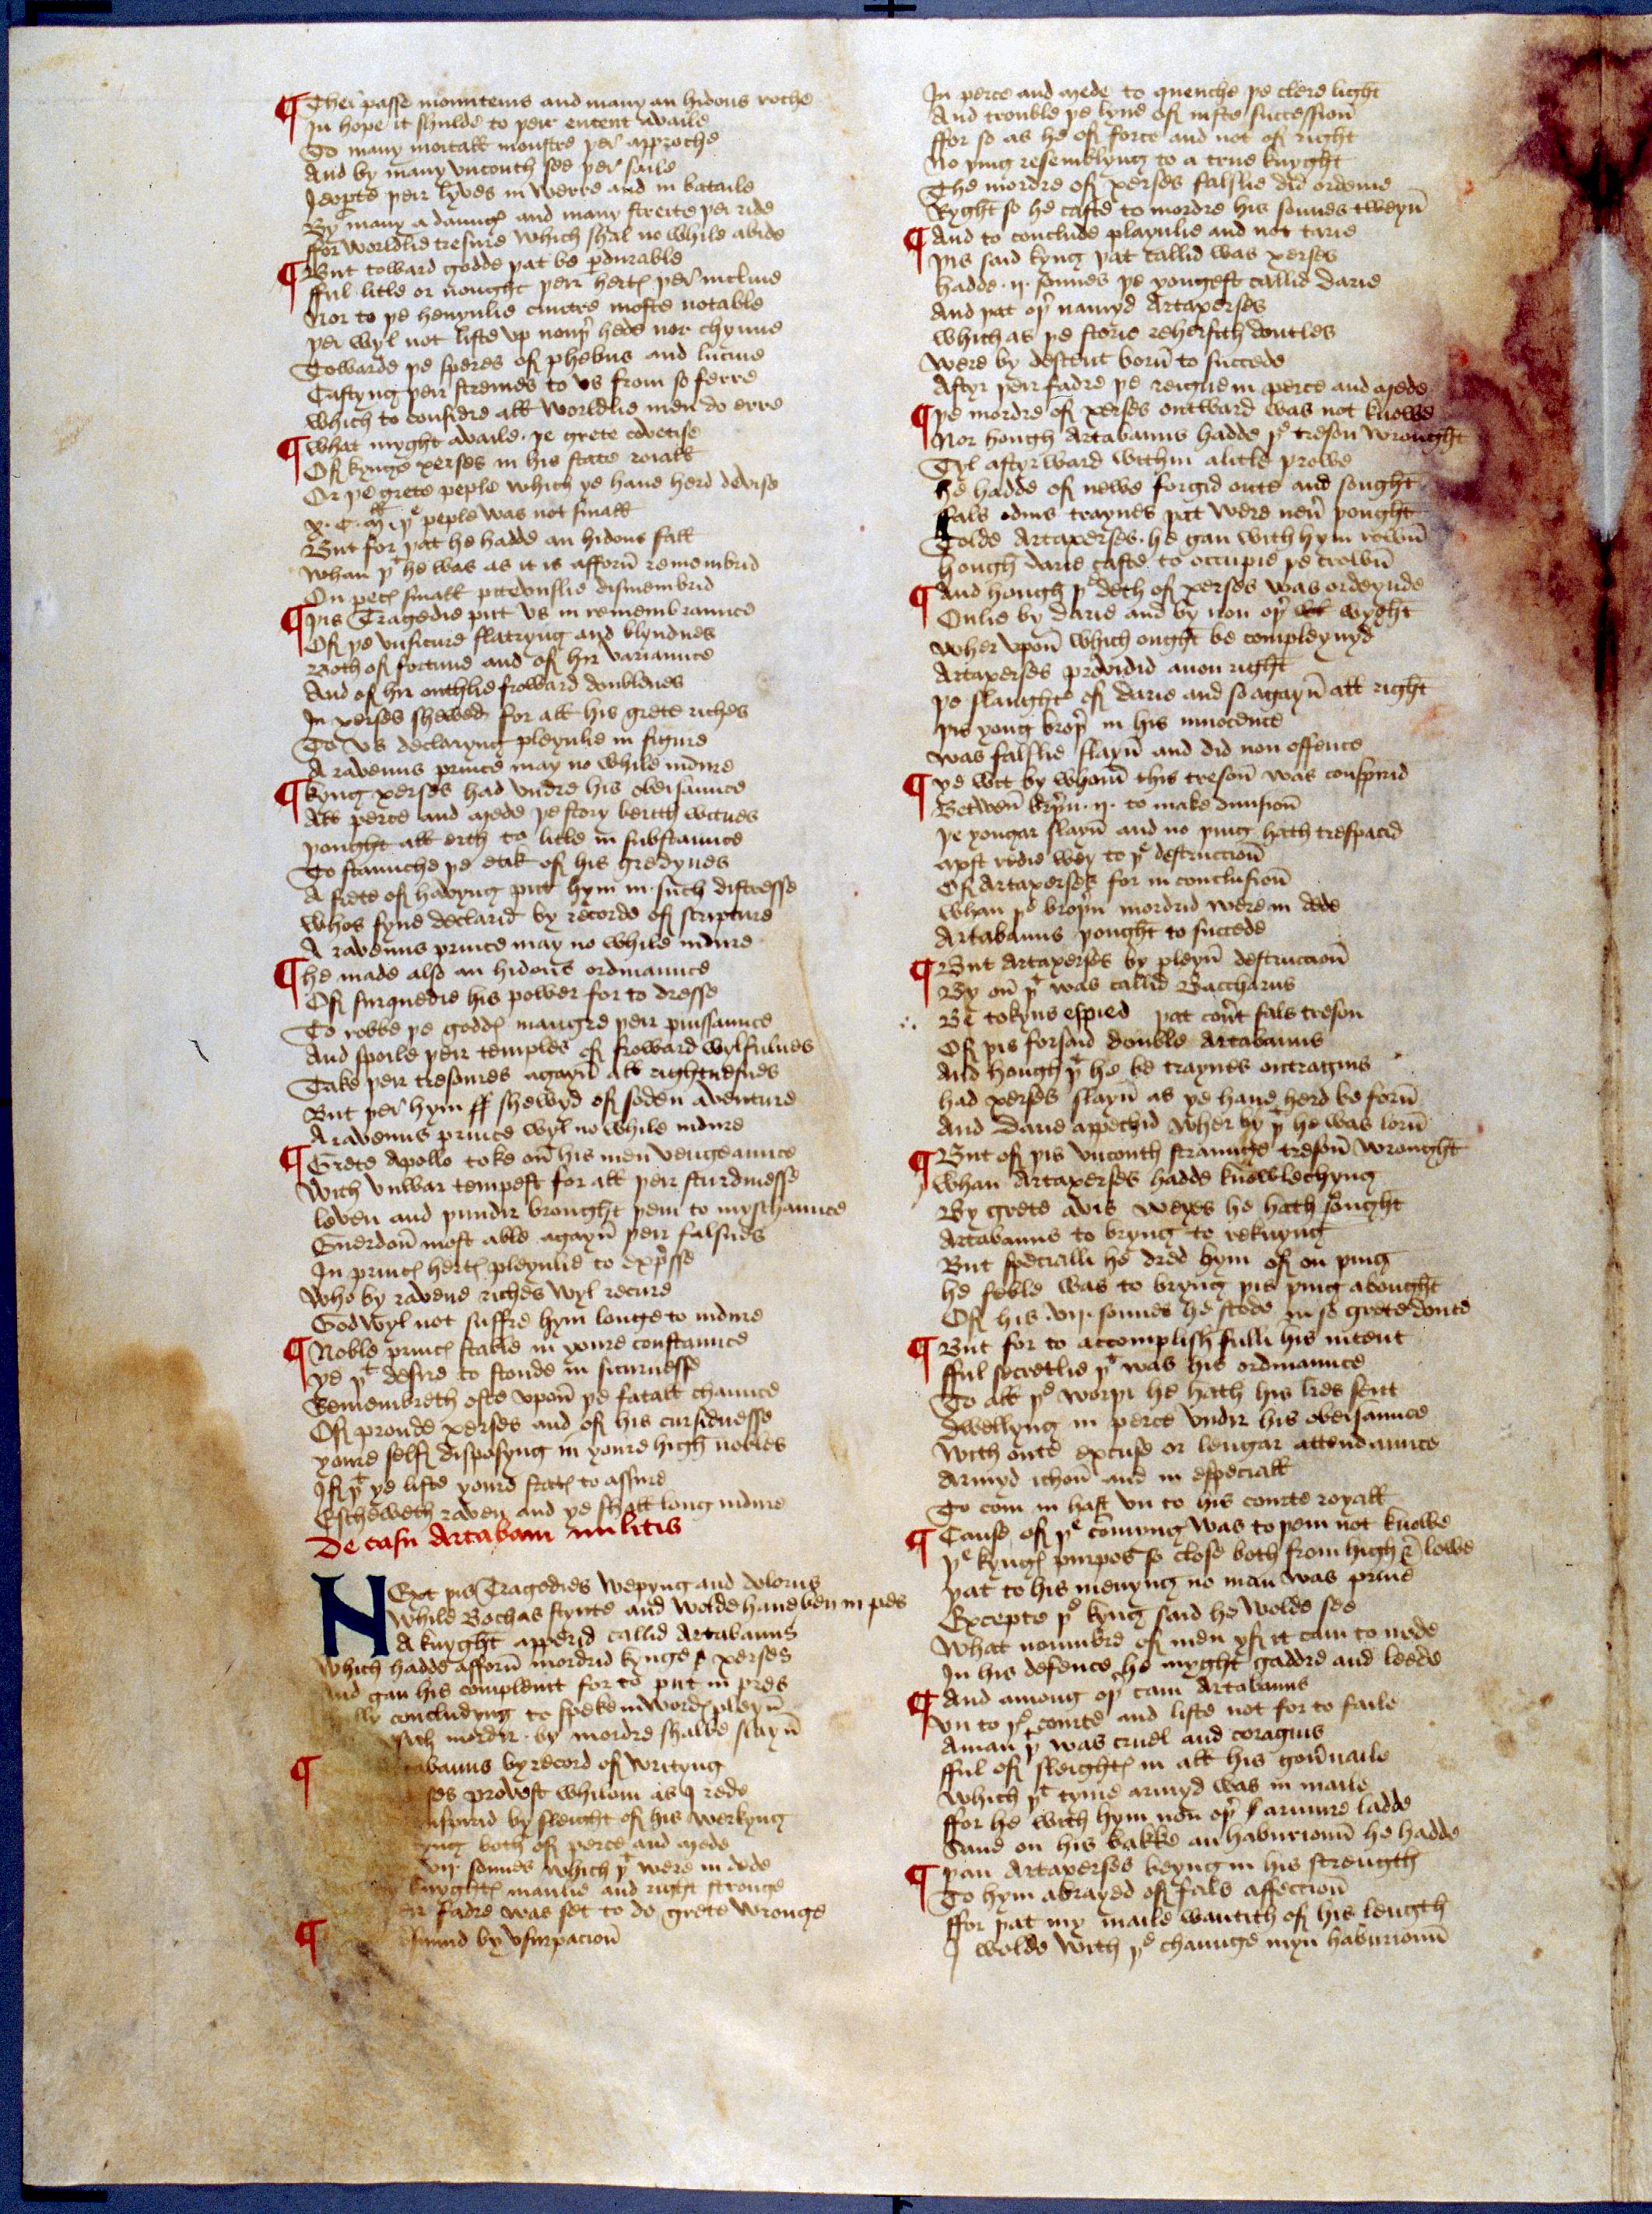 ¶ Thei passe mounteins and many an hidous roche
In hope it shulde to þeir entent availe
To many mortall monstre þei approche
And by many vncouth see þei saile
Jeopte þeir lyves in werre and in bataile
By many a daungᵉ and many streite þei ride
ffor worldlie tresure which shal no while abide
¶ But toward godde þat be pdurable
fful litle or nought þeir hertꝭ þei incline
Nor to þe hevynlie cuntre moste notable
þei wyl not lifte vp nouþ hede nor chynne
Towarde þe speres of phebus and lucine
Castyng þeir stremes to vs from so ferre
which to considre all worldlie men do erre
¶ What myght availe þe grete covetise
Of kynge xerses in his state roiall
Or þe grete peple which ye haue herd devise
x. C. Ml þe peple was not small
But for þat he hadde an hidous fall
Whan þt he was as it is afforn̄ remembrid
On pecꝭ small piteouslie dismembrid
¶ þis Tragedie putt vs in remembraunce
Of þe vnsicure flatryng and blyndnes
Both of fortune and of hir variaunce
And of hir onthlie froward doublenes
In xerses shewed for all his grete riches
To vs declaryng pleynlie in figure
A ravenus prince may no while indure
¶ kyng xerses had vndre his obeisaunce
All perce and mede þe story berith witnes
þought all erth to litle in substaunce
To staunche þe etik of his gredynes
A frete of havyng putt hym in such distresse
Whos fyne declarid by recorde of scripture
A ravenus prince may no while indure
¶ he made also an hidous ordinaunce
Of surquedie his power for to dresse
To robbe þe goddꝭ maugre þeir puissaunce
And spoile þeir temples of froward wylfulnes
Take þeir tresoures agayn̄ all rightwesnes
But þer hym ff shewyd of soden aventure
A ravenus prince wyl no while indure
¶ Grete Apollo toke on̄ his men vengeaunce
With vnwar tempest for all þeir sturdinesse
leven and þundir brought þem to myschaunce
Guerdon̄ most able agayn̄ þeir falsnes
In princꝭ hertꝭ pleynlie to exp̄sse
Who by ravene riches wyl recure
God wyl not suffre hym longe to indure
¶ Noble princꝭ stable in youre constaunce
ye þt desire to stonde in sicurnesse
Remembreth ofte vpon̄ þe fatall chaunce
Of proude xerses and of his cursidnesse
youre self disposyng in youre high nobles
If þt ye liste youre statꝭ to assure
Escheweth raven and ye shall long indure
De casu Artabani militis
NExt þis Tragedies wepyng and dolorus
While Bochas stynte and wolde haue ben in pes
A knyght apperid callid Artabanus
Which hadde afforn̄ mordrid kynge xerses
And gan his compleint for to put in pres
lly concludyng to speke in wordꝭ pleyn̄
mordir by mordre shalbe slayn̄
¶ abanus by record of writyng
ses provost whilom as I rede
nspirid by sleight of his werkyng
yng both of perce and mede
vij. sonnes which þt were in dede
knyghtꝭ manlie and right stronge
eir fadre was set to do grete wronge
¶ by vsurpacion̄
In perce and mede to quenche þe clere light
And trouble þe lyne of iuste succession̄
ffor so as he of force and not of right
No þing resemblyng to a true knyght
The mordre of xerses falslie did ordeine
Ryght so he caste to mordre his sonnes tweyn̄
¶ And to conclude playnlie and not tarie
þis said kyng þat callid was xerses
hadde .ij. sonnes þe yongest callid Darie
And þat oþ̄ namyd Artaxerses
which as þe storie rehersith doutles
Were by descent born̄ to succede
Aftyr þeir fadre þe reigne in perce and mede
¶ þe mordre of xerses outward was not knowe
Nor hough Artabanus hadde þe treson wrought
Tyl aftyrward within a litle þrowe
he hadde of newe forgid oute and sought
ffals traynes þat were neū þought
Tolde Artaxerses he gan with hym rown̄
hough darie caste to occupie þe crown̄
¶ And hough þe deth of xerses was ordeynde
Onlie by darie and by non oþ̄ wyght
wher vpon̄ which ought be compleynyd
Artaxerses providid anon right
þe slaughte of Darie and so agayn̄ all right
þis yong broþ̄ in his innocence
was falslie slayn̄ and did non offence
¶ þe wit by whom̄ this treson̄ was conspirid
Betwen̄ breþ̄n .ij. to make diuision̄
þe yongar slayn̄ and no þing hath trespacid
Next redie wey to þe destruccion̄
Of Artaxerses for in conclusion̄
whan þe broþ̄n mordrid were in dede
Artabanus þought to succede
¶ But Artaxerses by pleyn̄ destruccion̄
By on̄ þt was callid Baccharus
Be tokyns espied þat coūt fals treson
Of þis forsaid double Artabanus
And hough þt he be traynes outragius
had xerses slayn̄ as ye haue herd beforn̄
And Darie appechid wher by þt he was lorn̄
¶ But of þis vncouth straunge treson̄ wrought
Whan Artaxerses hadde knowlechyng
By grete avis weyes he hath sought
Artabanus to bryng to reknyng
But speciallie he dred hym of on þing
he feble was to bryng þis þing abought
Of his .vij. sonnes he stode in so grete doute
¶ But for to accomplish fulli his intent
fful secretlie þt was his ordinaunce
To all þe worþi he hath his lres sent
Dwellyng in perce vndir his obeisaunce
With oute excuse or lengar attendaunce
Armyd ichon̄ and in especiall
To com in hast vn to his courte royall
¶ Cause of þe comyng was to þem not knowe
þe kyngꝭ purpos so close both from high & lowe
þat to his menyng no man was prive
Excepte þe kyng said he wolde see
What noumbre of men yf it cam to nede
In his defence he myght gaddre and leede
¶ And among oþ̄ cam Artabanus
Vn to þe courte and liste not for to faile
A man þt was cruel and coragius
fful of sleightꝭ in all his goūnaile
Which þt tyme armyd was in maile
ffor he with hym non oþ̄ armure ladde
Saue on his bakke an haburioun̄ he hadde
¶ þan Artaxerses beyng in his strength
To hym abrayed of fals affeccion̄
ffor þat my maile wantith of his length
I wolde with þe chaunge myn haburioun̄